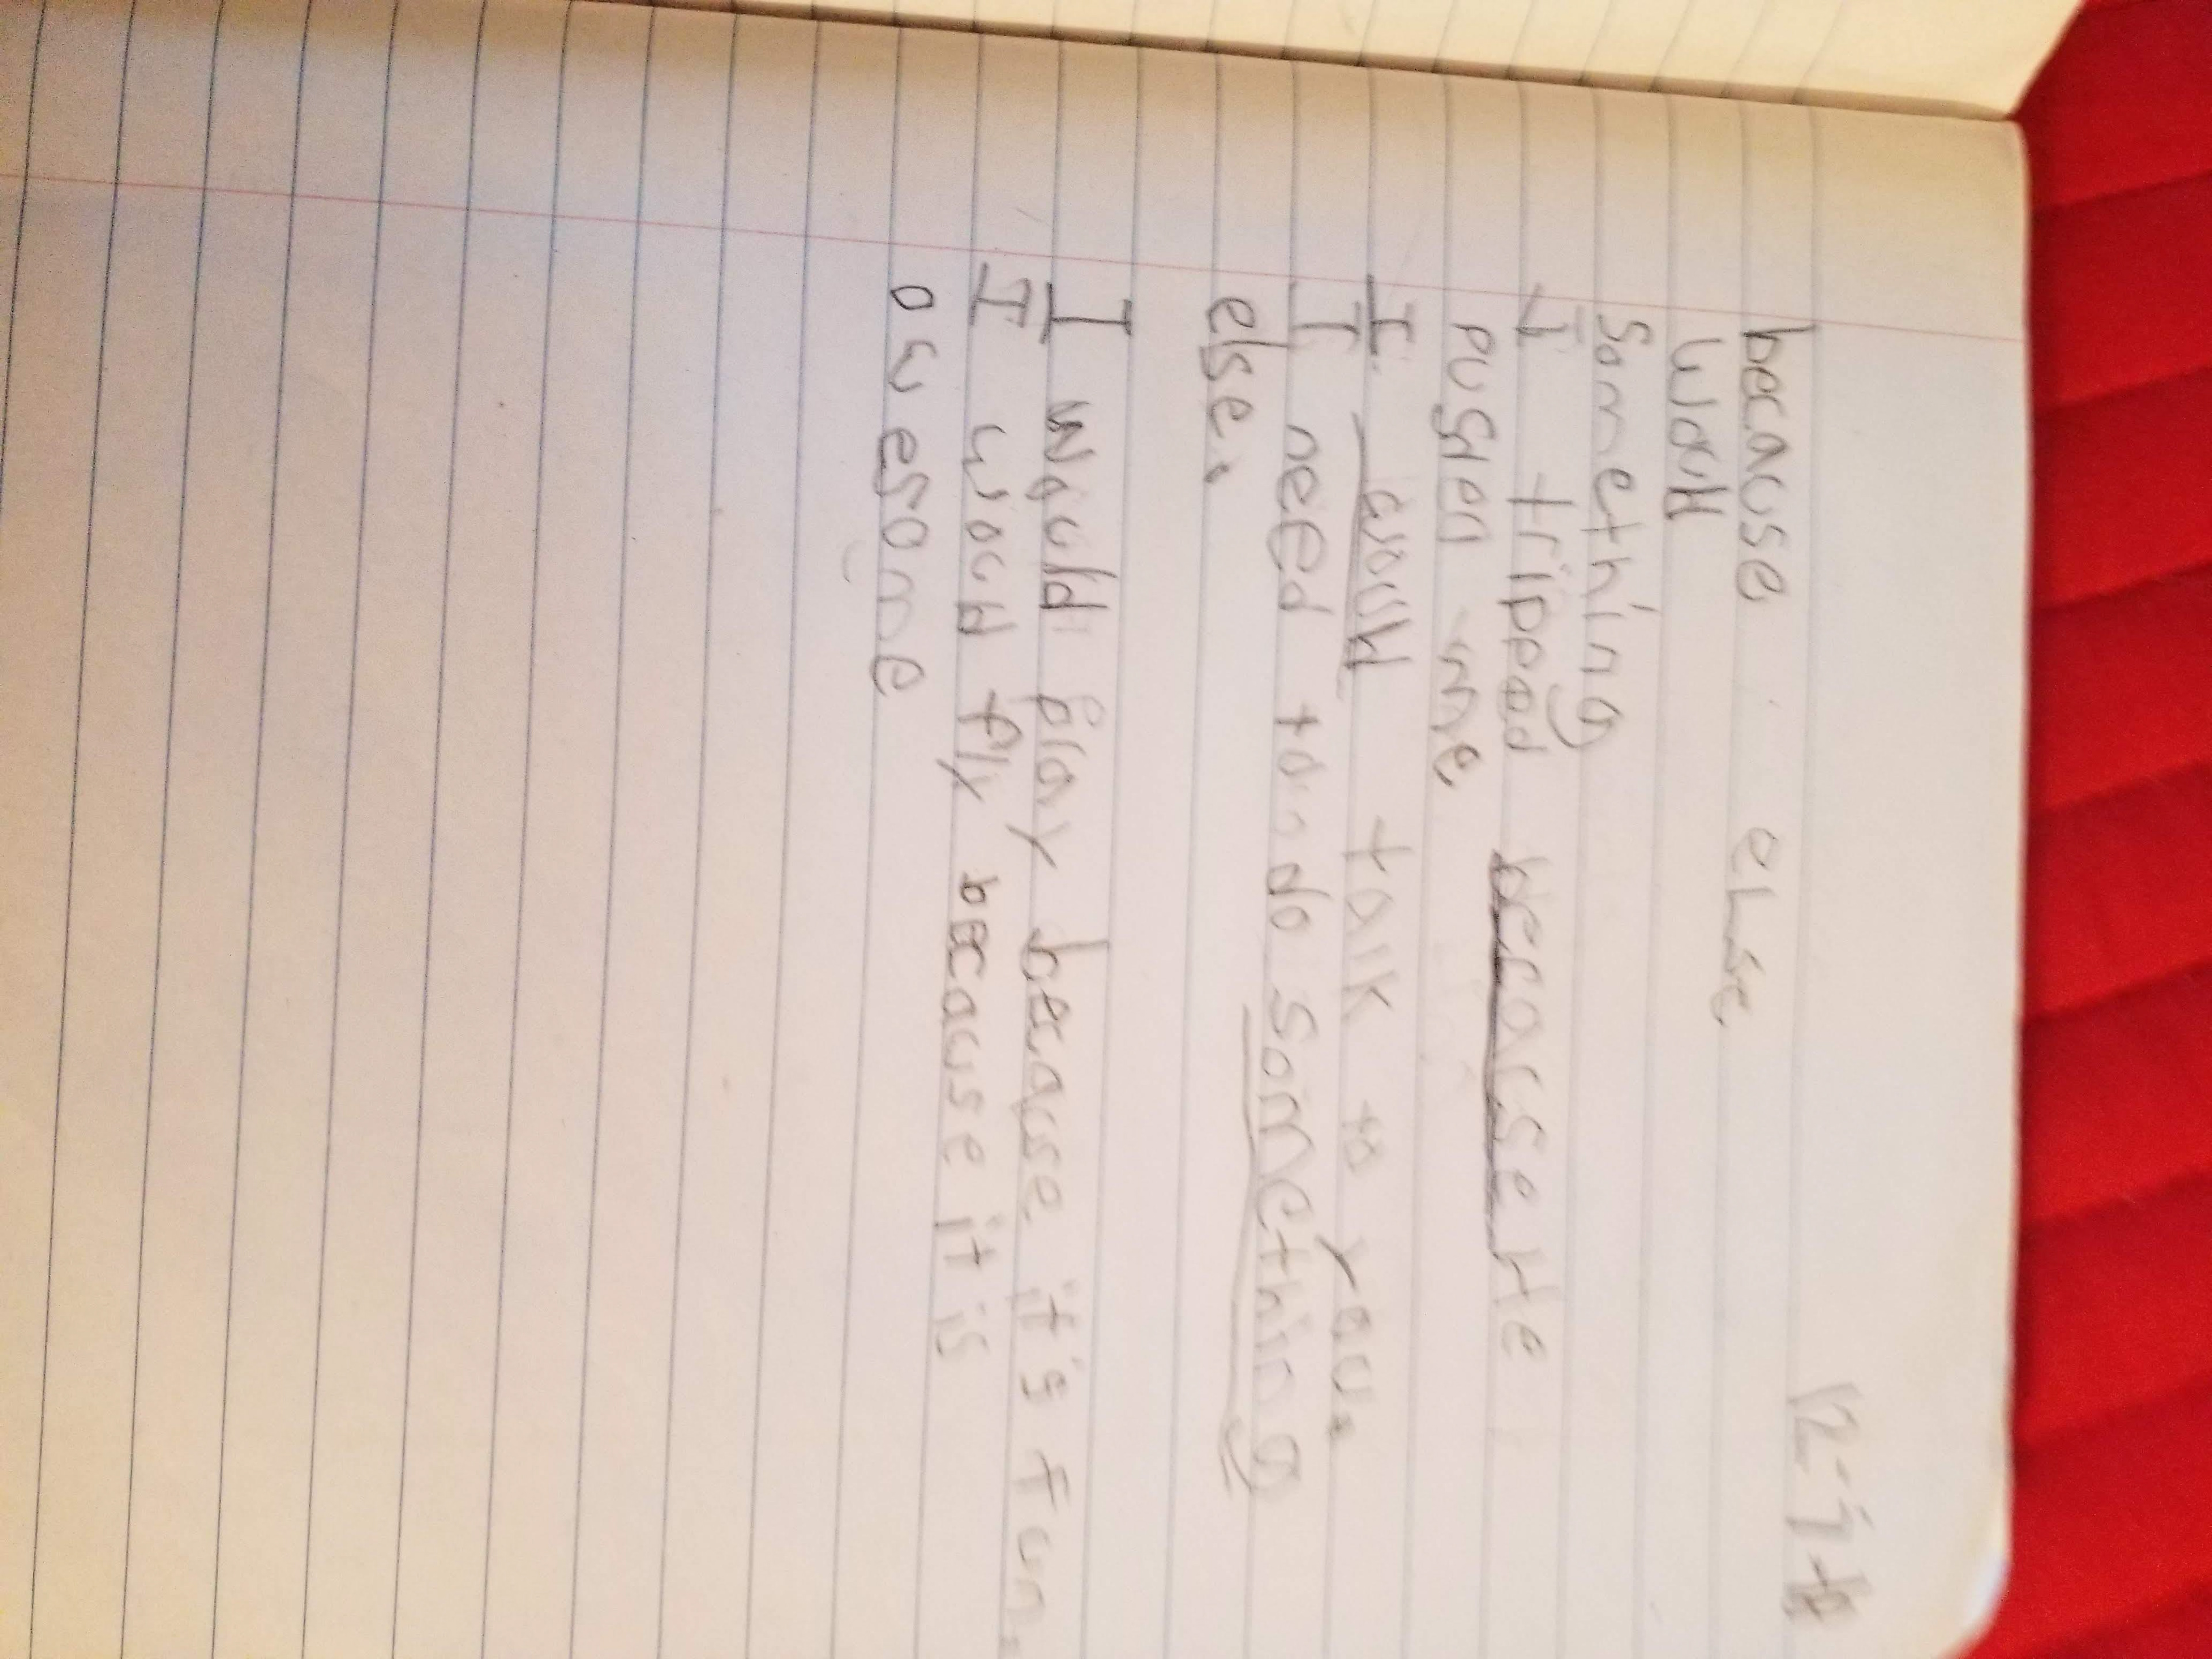 because else
would
something
I tripped because He
pushed me.
I would talk to you.
I need to do something
else.
I would play because it's fun.
I would fly because it is
awesome